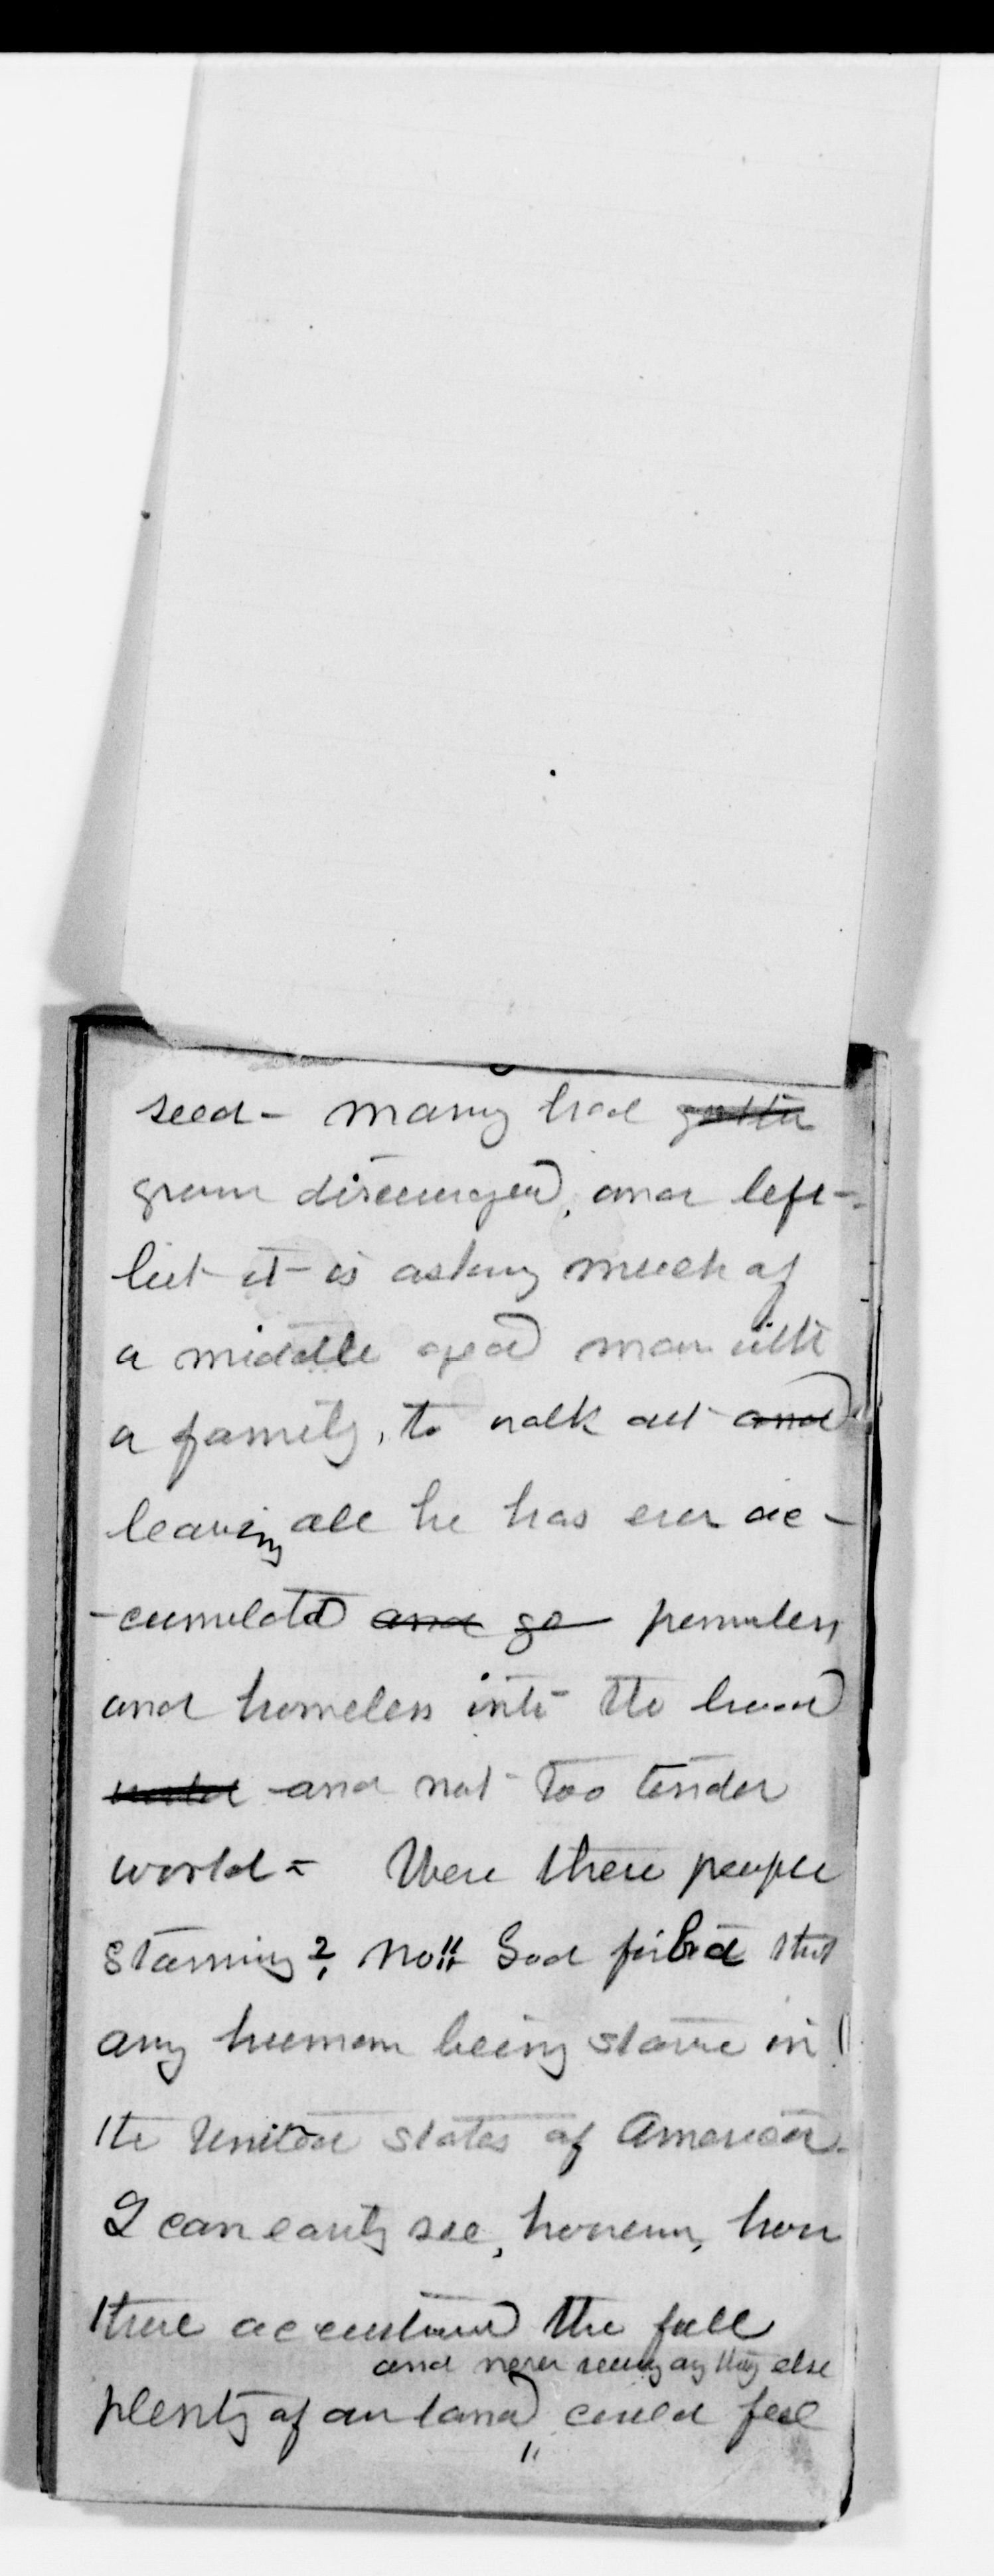 seed - many had gotten
grown discouraged, and left -
but it is asking much of
a middle aged man with
a family, to walk out and
leaving all he has ever ac -
- cumulated and go penniless
and homeless into the broad
world and not too tender
world - Were these people
starving? No!! God forbid that
any human being starve in
the United States of America -
I can easily see, however, how
those accustomed the full
and never seeing any thing else
plenty of our land could feel